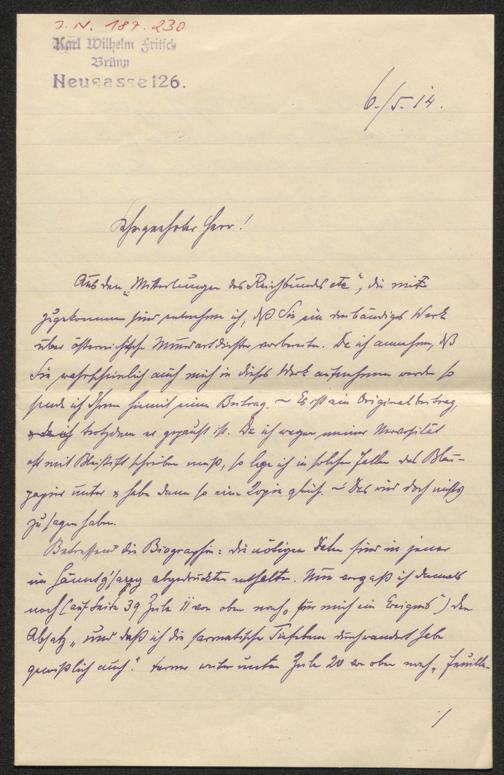 J. N. 187.230
Karl Wilhelm Fritsch
Brünn
Neugasse 126.
6./5. 14.
Sehrgeehrter Herr!
Aus den „Mitteilungen des Reichsbundes etc“, die mir
zugekommen sind entnehme ich, daß Sie ein dreibändiges Werk
über österreichische Mundartdichter vorbereiten. Da ich annehme, daß
Sie wahrscheinlich auch mich in dieses Werk aufnehmen werden so
sende ich Ihnen hiemit einen Beitrag. – Es ist ein Originalbeitrag,
trotzdem er gepaust ist. Da ich wegen meiner Nervosität
oft mit Bleistift schreiben muß, so lege ich in solchen Fällen das Blau-
papier unter & habe dann so eine Kopie gleich. – Das wird doch nichts
zu sagen haben.
Betreffend die Biographie: die nötigen Daten sind in jener
im abgedruckten enthalten. Nur vergaß ich damals
noch (auf Seite 39 Zeile 11 von oben nach „für mich ein Ereignis“) den
Absatz „und daß ich die sarmatische Tiefebene durchwandert habe
gewißlich auch.“ ferner weiter unten Zeile 20 von oben nach „Feuille-
./